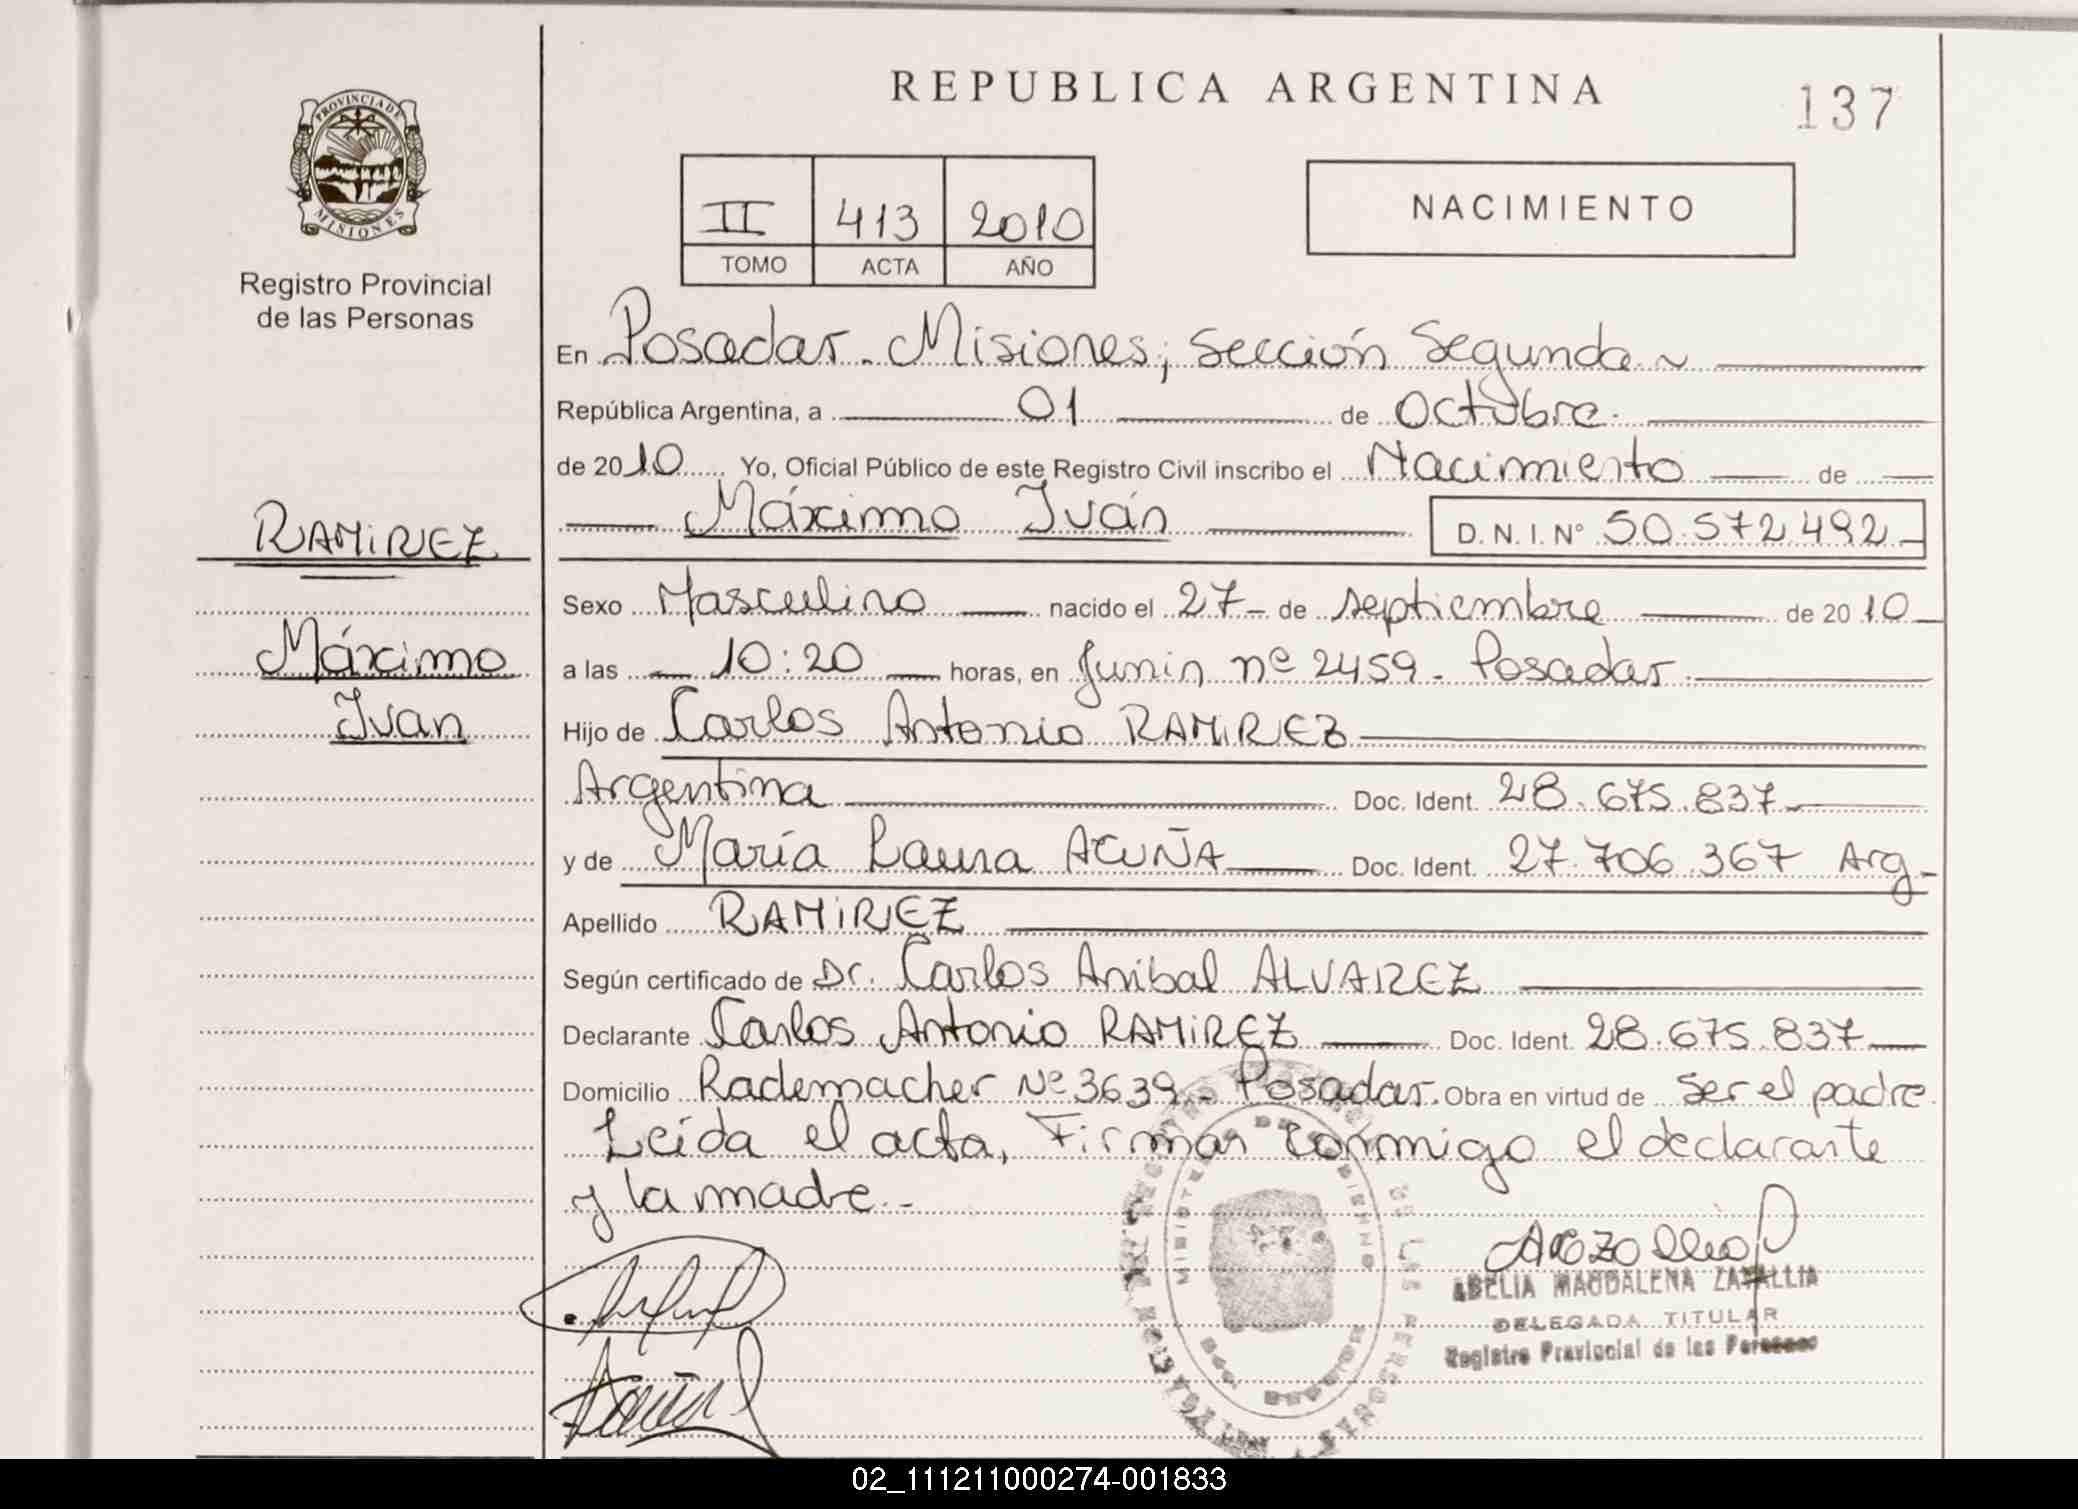 REPUBLICA ARGENTINA
137
PROVINCIA DE MISIONES
Registro Provincial
de las Personas
II 413 2010
TOMO ACTA AÑO
NACIMIENTO
En Posadas. Misiones, Sección Segunda
República Argentina, a 01 de Octubre.
de 2010 Yo, Oficial Público de este Registro Civil inscribo el Nacimiento de
Máximo Iván D. N. I. Nº 50.572.492
RAMIREZ
Máximo
Ivan
Sexo Masculino nacido el 27 de septiembre de 2010
a las 10:20 horas, en Junin nº 2459. Posadas.
Hijo de Carlos Antonio RAMIREZ
Argentina Doc. Ident. 28.675.837
y de María Laura ACUÑA Doc. Ident. 27.706.367 Arg
Apellido RAMIREZ
Según certificado de Dr. Carlos Anibal ALVAREZ
Declarante Carlos Antonio RAMIREZ Doc. Ident. 28.675.837
Domicilio Rademacher Nº 3639. Posadas. Obra en virtud de ser el padre.
Leída el acta, Firman conmigo el declarante
y la madre.-
MAGDALENA
DELEGADA TITULAR
Registro Provincial de las Personas
02_111211000274-001833